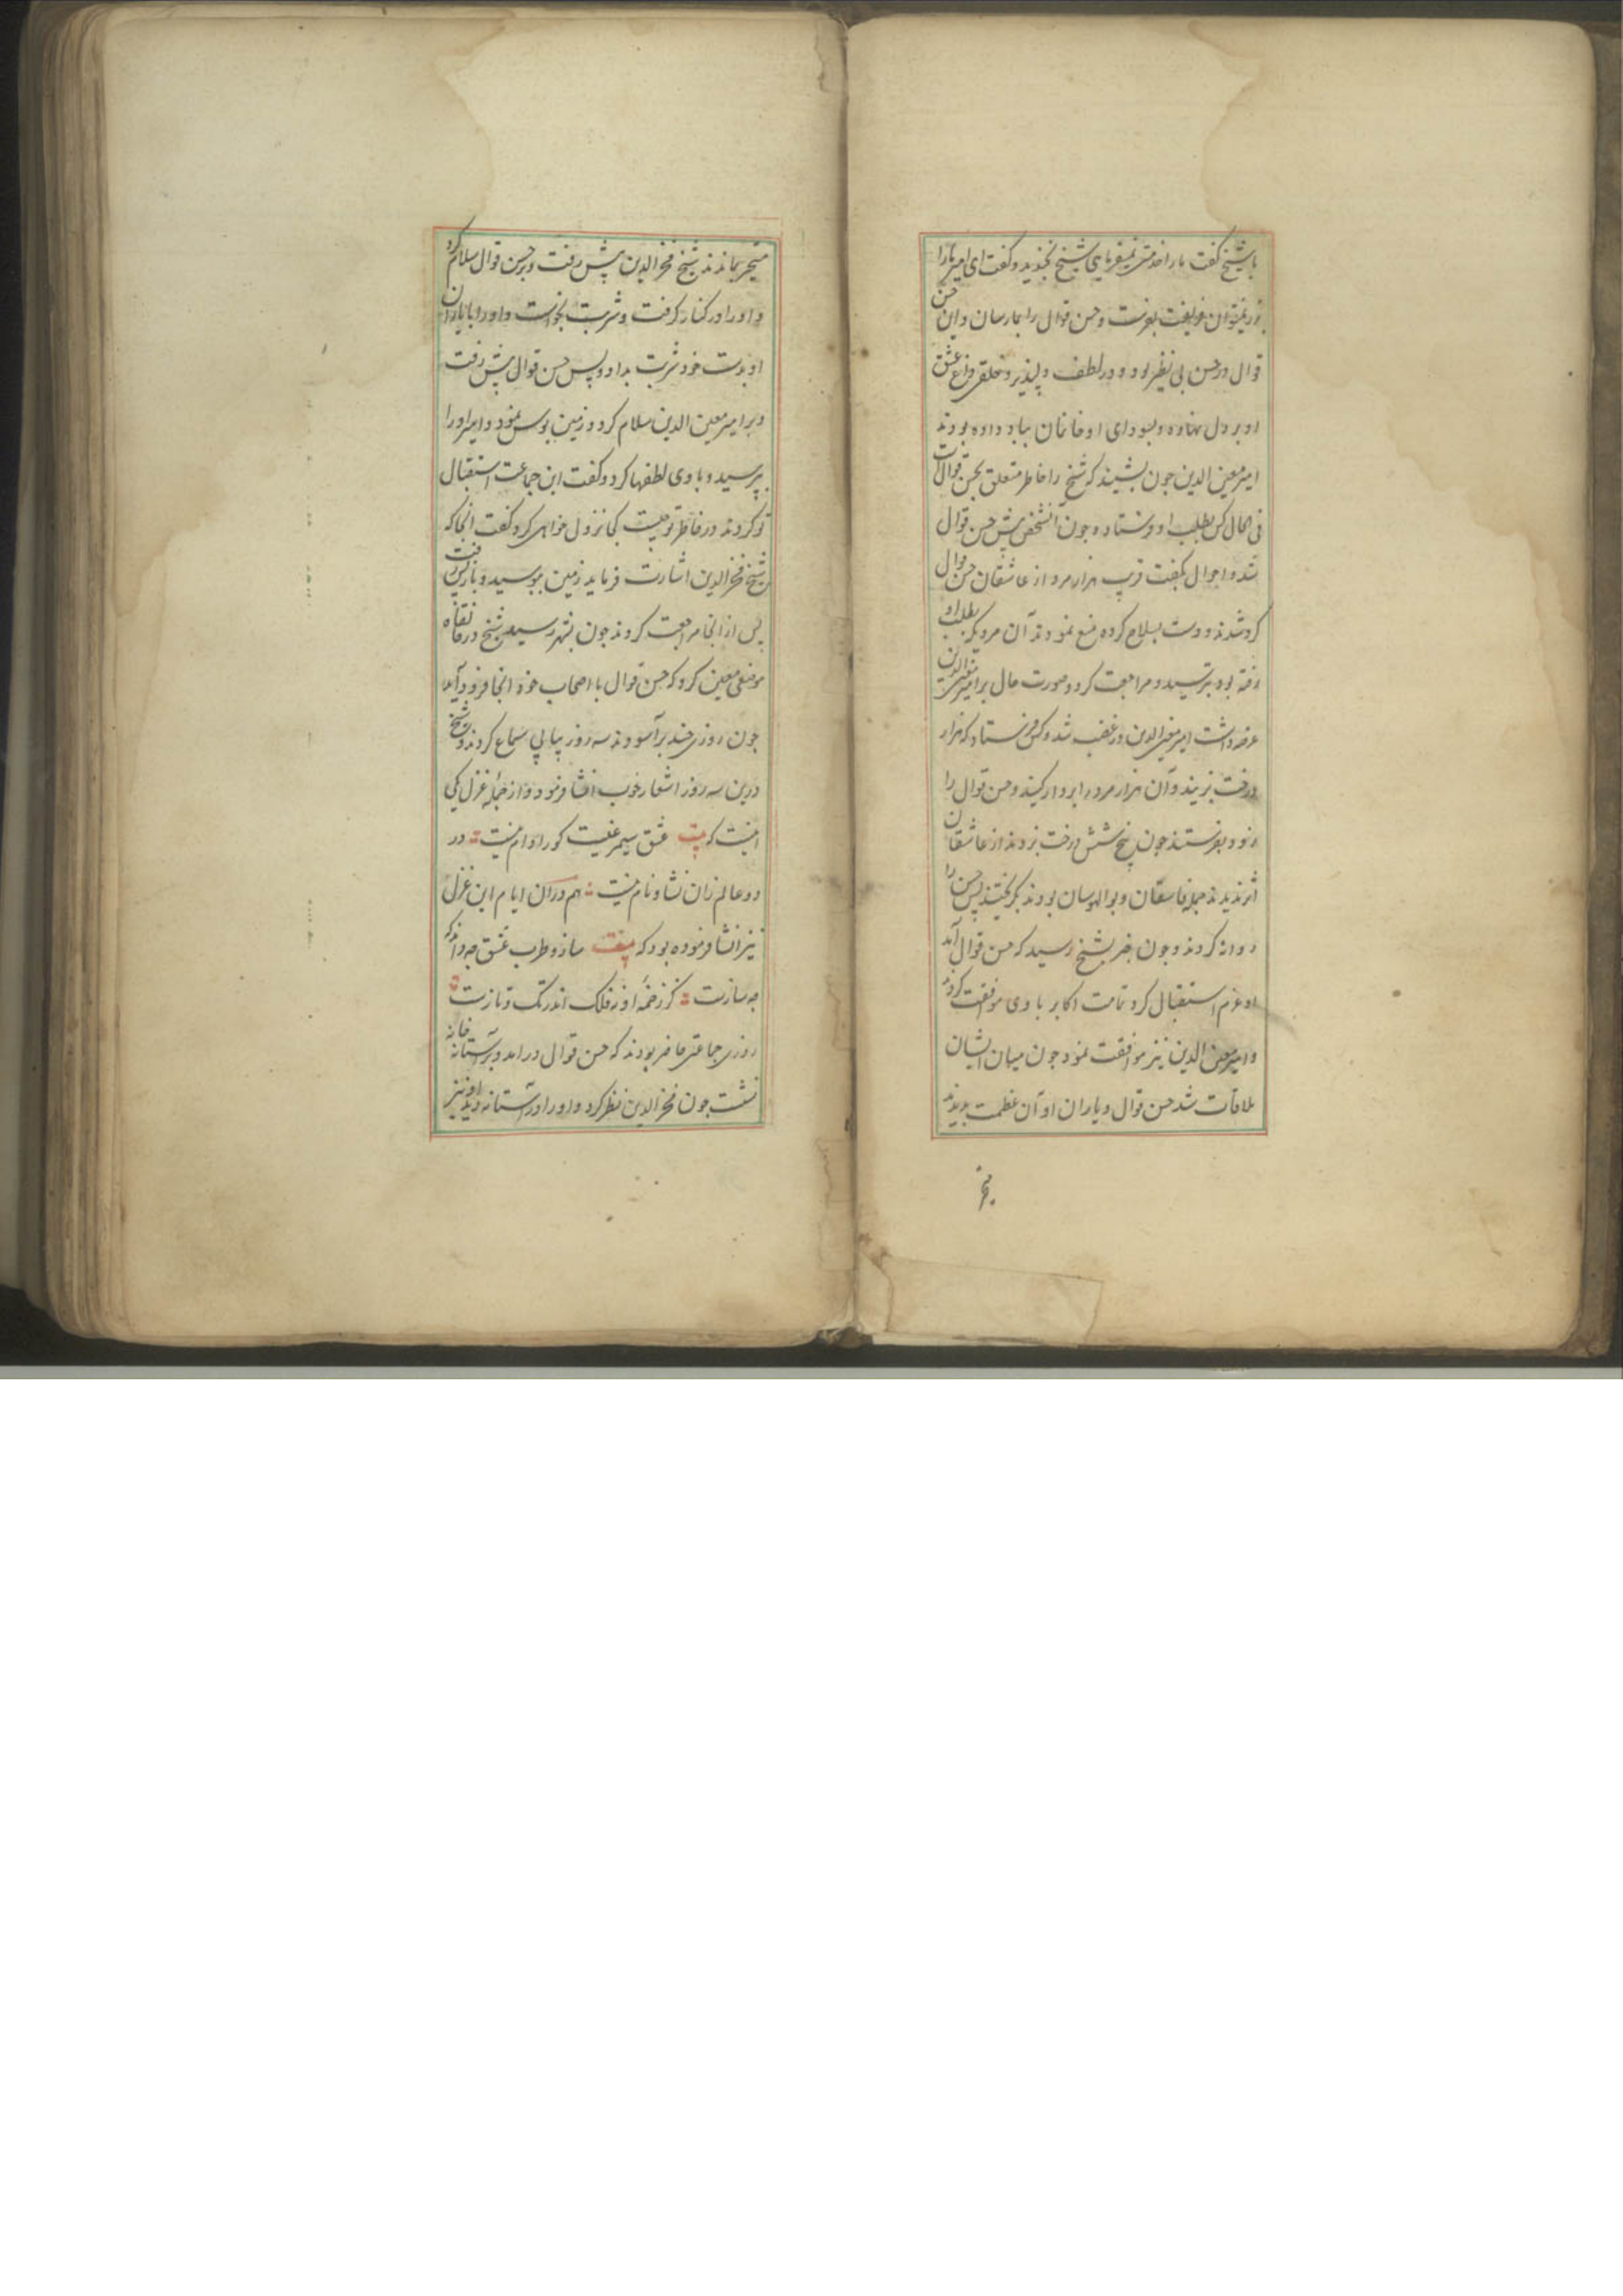 با شیخ گفت ما را خدمتی نمیفرمایی شیخ بخندید و گفت ای امیر ما را
بزر نمیتوان فریفت بفرست و حسن قوال را بما رسان و این حسن
قوال در حسن بی نظیر بود و در لطف دلپذیر و خلقی داغ عشق
او بر دل نهاده و بسودای او خانمان بباد داده بودند
امیر معین الدین چون بشنید که شیخ را خاطر متعلق بحسن قوال است
فی الحال کس بطلب او فرستاده چون آنشخص پیش حسن قوال
شد و احوال بگفت قریب هزار مرد از عاشقان حسن قوال
گرد شدند و دست بسلاح کرده منع نمودند آن مرد که بطلب او
رفته بود بترسید و مراجعت کرد و صورت حال بر امیر معین الدین
عرضه داشت امیر معین الدین در غضب شد و کس فرستاد که هزار
درخت بزنید و آن هزار مرد را بر دار کنید و حسن قوال را
زود بفرستند چون پنج شش درخت بزدند از عاشقان
اثر ندیدند جمله فاسقان و بوالهوسان بودند بگریختند پس حسن را
روانه کردند و چون خبر بشیخ رسید که حسن قوال آمد
او عزم استقبال کرد تمامت اکابر با وی موافقت کردند
و امیر معین الدین نیز موافقت نمود چون میان ایشان
ملاقات شد حسن قوال و یاران او آن عظمت بدیدند
متحیر بماندند شیخ فخر الدین پیش رفت و بر حسن قوال سلام کرد
و او را در کنار گرفت و شربت بخواست و او را با یاران
او بدست خود شربت بداد و پس حسن قوال پیش رفت
و بر امیر معین الدین سلام کرد و زمین بوس نمود و امیر او را
بپرسید و با وی لطفها کرد و گفت این جماعت استقبال
تو کردند در خاطر تو چیست کجا نزول خواهی کرد گفت انجا که
شیخ فخر الدین اشارت فرماید زمین ببوسید و باز پس رفت
پس از انجا مراجعت کردند چون بشهر رسید شیخ در خانقاه
موضعی معین کرد که حسن قوال با اصحاب خود انجا فرود آید
چون روزی چند بر آسودند سه روز پیاپی سماع کردند و شیخ
درین سه روز اشعار خوب انشا فرمود و از جمله غزل یکی
اینست که بیت عشق سیمرغیست کورا دام نیست در
دو عالم زان نشان و نام نیست هم در آن ایام این غزل
نیز انشا فرموده بود که بیت ساز و طرب عشق چه داند که
چه سازست کز زخمه او نه فلک اندر تک و تازست
روزی جماعتی حاضر بودند که حسن قوال در آمد و بر آستانه خانه
نشست چون فخر الدین نظر کرد و او را در آستانه دید او نیز